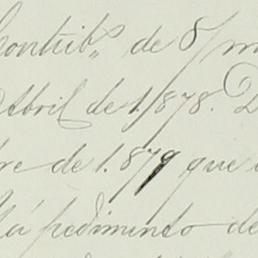 Contribs. de 8/m
Abril de 1,878. D
re de 1.879 que
la pedimento de